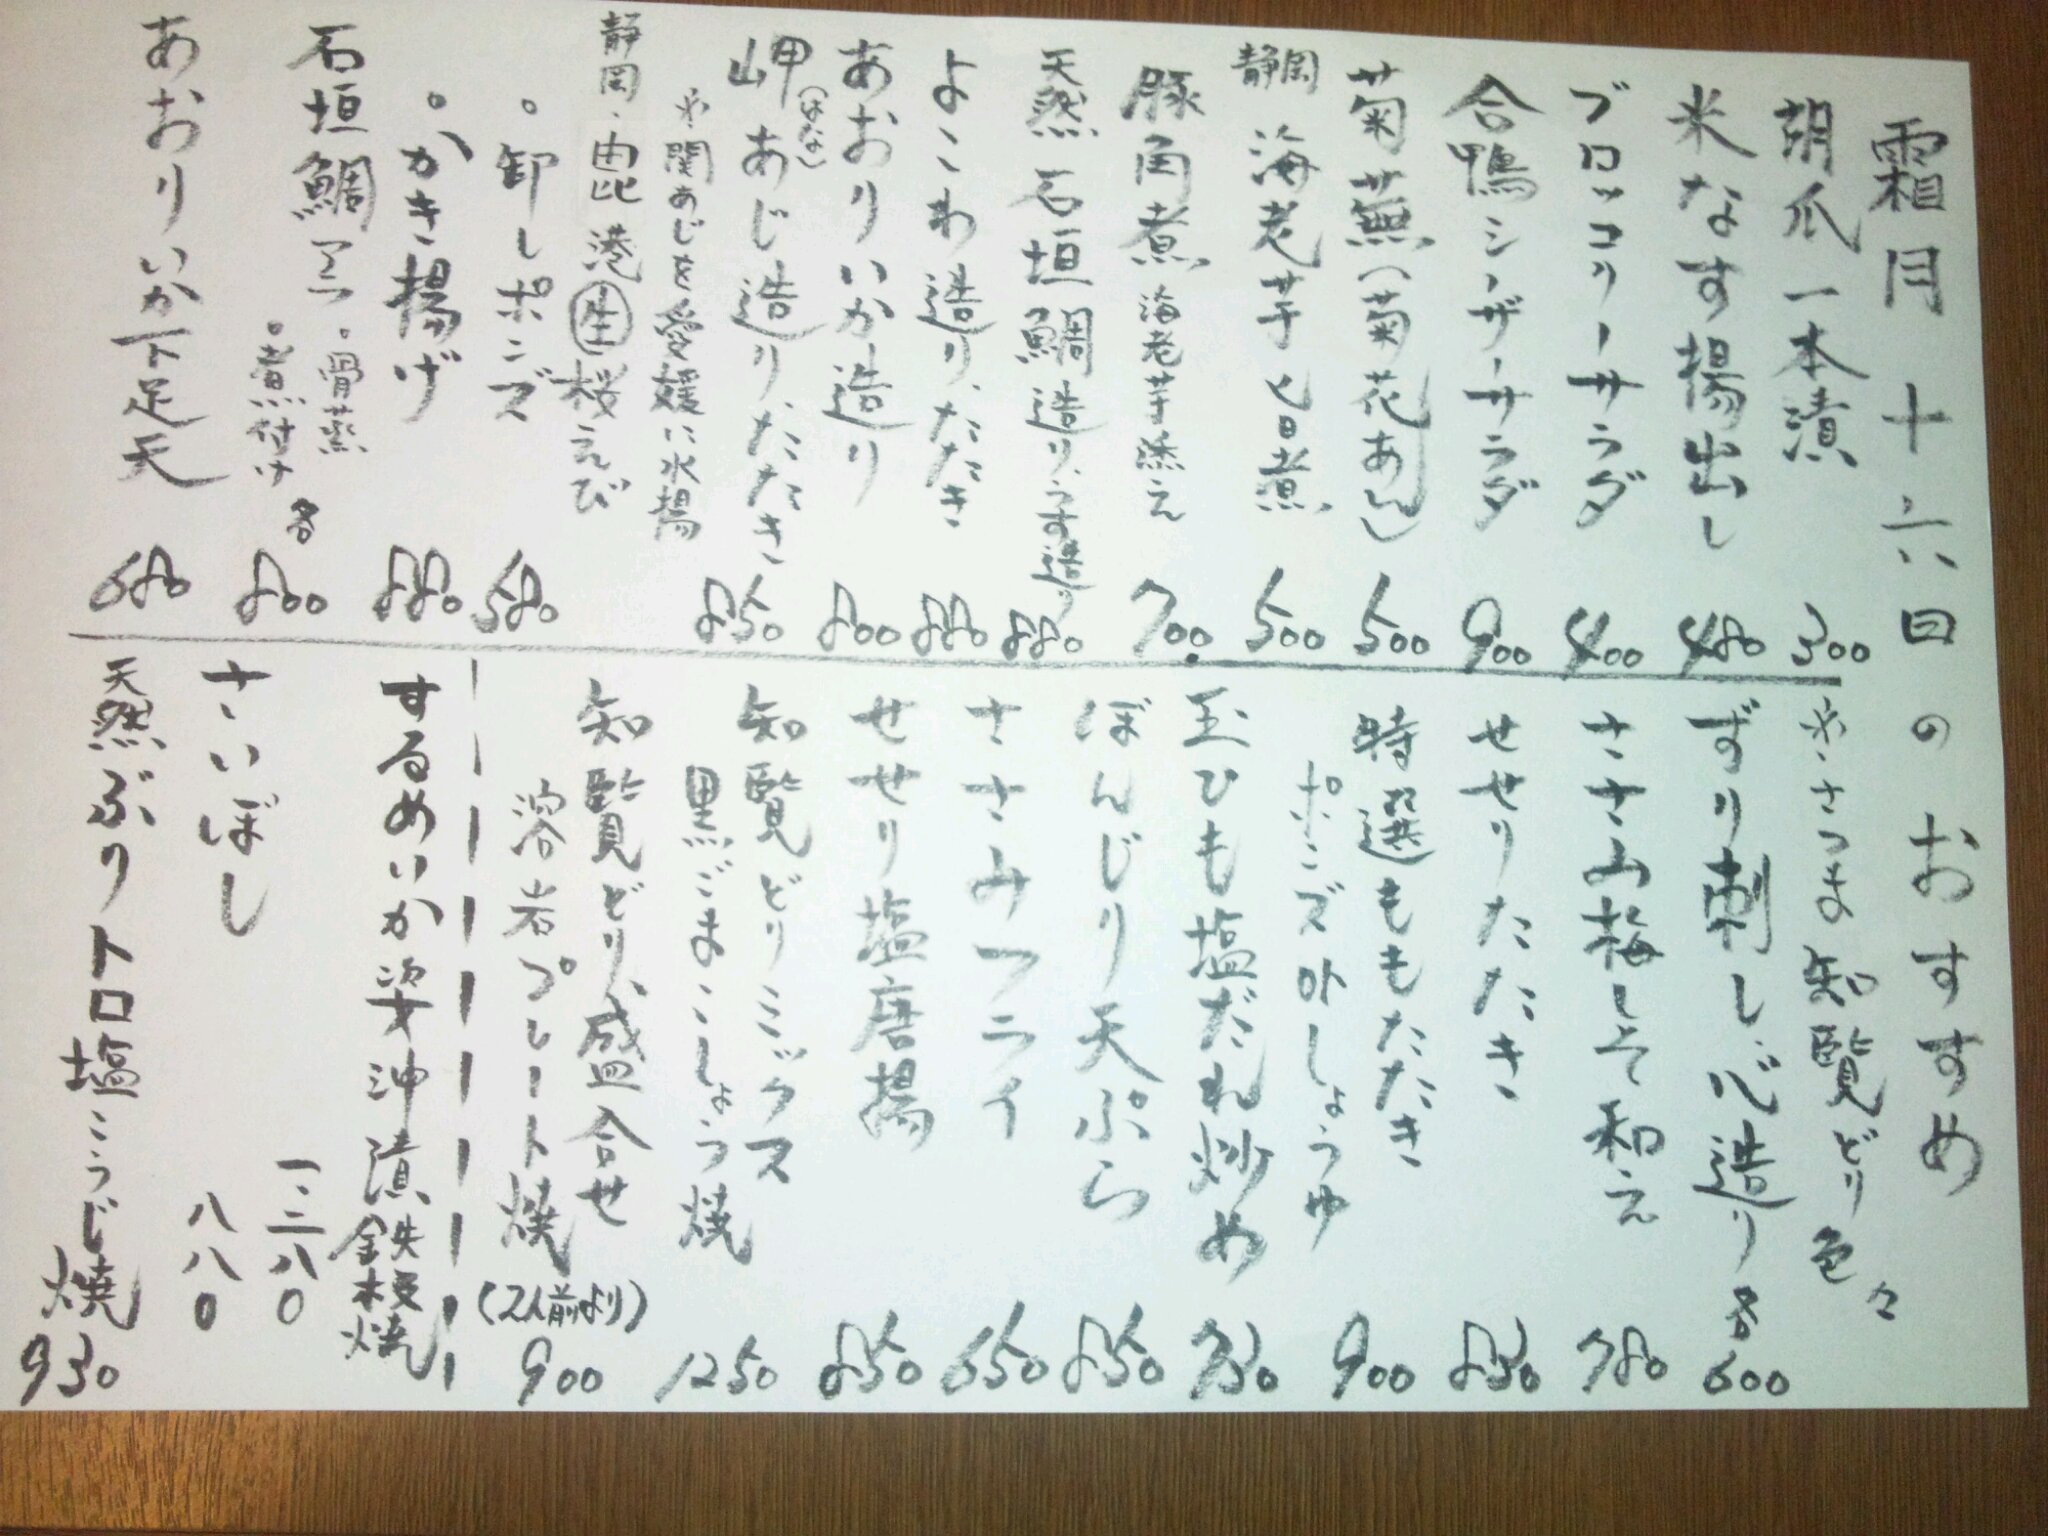 霜月十六日のおすすめ
胡瓜一本漬 300
米なす揚出し 480
ブロッコリーサラダ 400
合鴨シーザーサラダ 900
菊蕪(菊花あん) 500
静岡 海老芋と白煮 500
豚角煮 海老芋添え 700
天然石垣鯛造り、うす造り 880
よこわ造り、たたき 880
あおりいか造り 800
岬(はな)あじ造り、たたき 850
※関あじを愛媛に水揚
静岡・由比港 生 桜えび
・卸しポンズ 580
・かき揚げ 880
石垣鯛アラ ・骨蒸
・煮付け 各800
あおりいか下足天 680
※さつま知覧どり色々
ずり刺し、心造り 各600
ささ山梅しそ和え 780
せせりたたき 830
特選ももたたき 900
ポンズorしょうゆ
玉ひも塩だれ炒め 730
ぼんじり天ぷら 850
ささみフライ 650
せせり塩唐揚 850
知覧どりミックス
黒ごまこしょう焼 1250
知覧どり、盛合せ
溶岩プレート焼 (2人前より) 900
するめいか姿沖漬鉄板焼
一、二八〇
さいぼし 八八〇
天然ぶりトロ塩こうじ焼 930